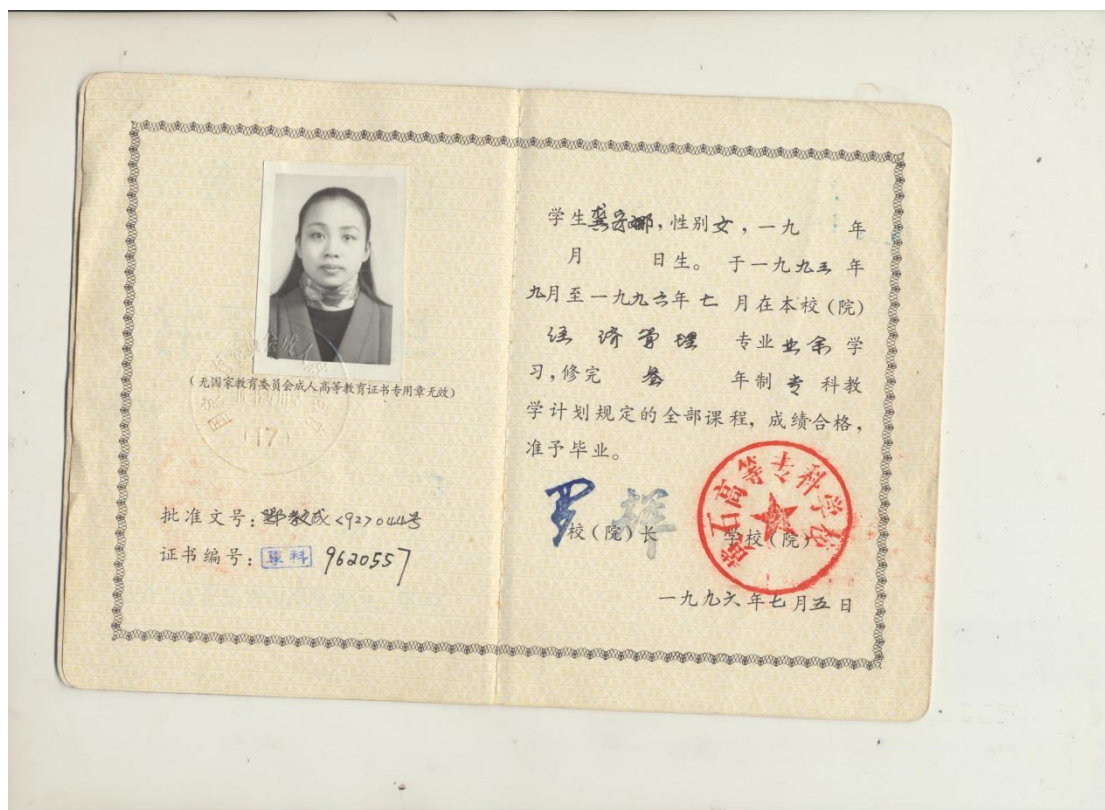 (无国家教育委员会成人高等教育证书专用章无效)
(17)
批准文号:鄂教成<92>044号
证书编号: 专科 9620557
学生龚 娜,性别女,一九 年
月 日生。于一九九三年
九月至一九九六年七月在本校(院)
经济管理 专业业余学
习,修完 叁 年制专科教
学计划规定的全部课程,成绩合格,
准予毕业。
罗辉
校(院)长 学校(院)
黄石高等专科学校
一九九六年七月五日